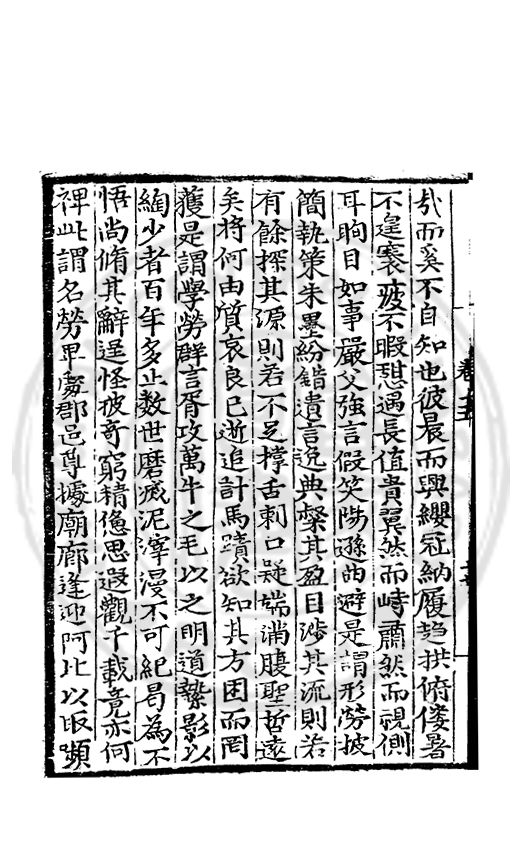 哉而奚不自知也彼晨而興纓冠納履趋拱俯僂暑
不遑褰疲不暇憇遇長值貴翼然而峙肅然而視側
耳眴目如事嚴父強言假笑陽遜曲避是謂形勞披
簡執策朱墨紛錯遺言逸典檠其盈目涉其流則若
有餘探其源則若不足撐舌刺口疑端滿腹聖哲遠
矣將何由質哀良已逝追計馬蹟欲知其方困而罔
獲是謂學勞群言胥攻萬牛之毛以之明道縶影以
緰少者百年多止数世磨滅泥滓漫不可紀曷為不
悟尚脩其辭逞怪披奇窮精僫思遐觀千載竟亦何
裨此謂名勞卑䖏郡邑尊據廟廊逢迎阿比以取嚬
卷十五